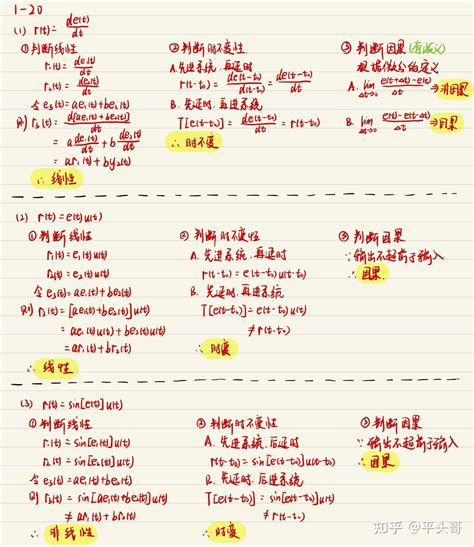 1-20
(1) r(t)= de(t)/dt
① 判断线性
r₁(t)= de₁(t)/dt
r₂(t)= de₂(t)/dt
令 e₃(t)=ae₁(t)+be₂(t)
则 r₃(t)= d[ae₁(t)+be₂(t)]/dt
= a de₁(t)/dt + b de₂(t)/dt
= ar₁(t)+by₂(t)
∴ 线性
② 判断时不变性
A.先进系统,再延时
r(t-t₀)= de(t-t₀)/d(t-t₀) = de(t-t₀)/dt
B. 先延时,再进系统
T[e(t-t₀)]= de(t-t₀)/dt = r(t-t₀)
∴ 时不变
③ 判断因果(有歧义)
根据微分的定义
A. lim Δt→0 e(t+Δt)-e(t)/Δt ⇒非因果
B. lim Δt→0 e(t)-e(t-Δt)/Δt ⇒因果
(2) r(t)=e(t)u(t)
① 判断线性
r₁(t)=e₁(t)u(t)
r₂(t)=e₂(t)u(t)
令 e₃(t)=ae₁(t)+be₂(t)
则 r₃(t)=[ae₁(t)+be₂(t)]u(t)
=ae₁(t)u(t)+be₂(t)u(t)
=ar₁(t)+br₂(t)
∴ 线性
② 判断时不变性
A. 先进系统,再延时
r(t-t₀)=e(t-t₀)u(t-t₀)
B. 先延时,再进系统
T[e(t-t₀)]=e(t-t₀)u(t)
≠r(t-t₀)
∴ 时变
③ 判断因果
∵输出不超前于输入
∴ 因果
(3) r(t)=sin[e(t)]u(t)
① 判断线性
r₁(t)=sin[e₁(t)]u(t)
r₂(t)=sin[e₂(t)]u(t)
令 e₃(t)=ae₁(t)+be₂(t)
则 r₃(t)=sin[ae₁(t)+be₂(t)]u(t)
≠ar₁(t)+br₂(t)
∴ 非线性
② 判断时不变性
A. 先进系统,后延时
r(t-t₀)=sin[e(t-t₀)]u(t-t₀)
B. 先延时,后进系统
T[e(t-t₀)]=sin[e(t-t₀)]u(t)
≠r(t-t₀)
∴ 时变
③ 判断因果
∵ 输出不超前于输入
∴ 因果
知乎 @平头哥